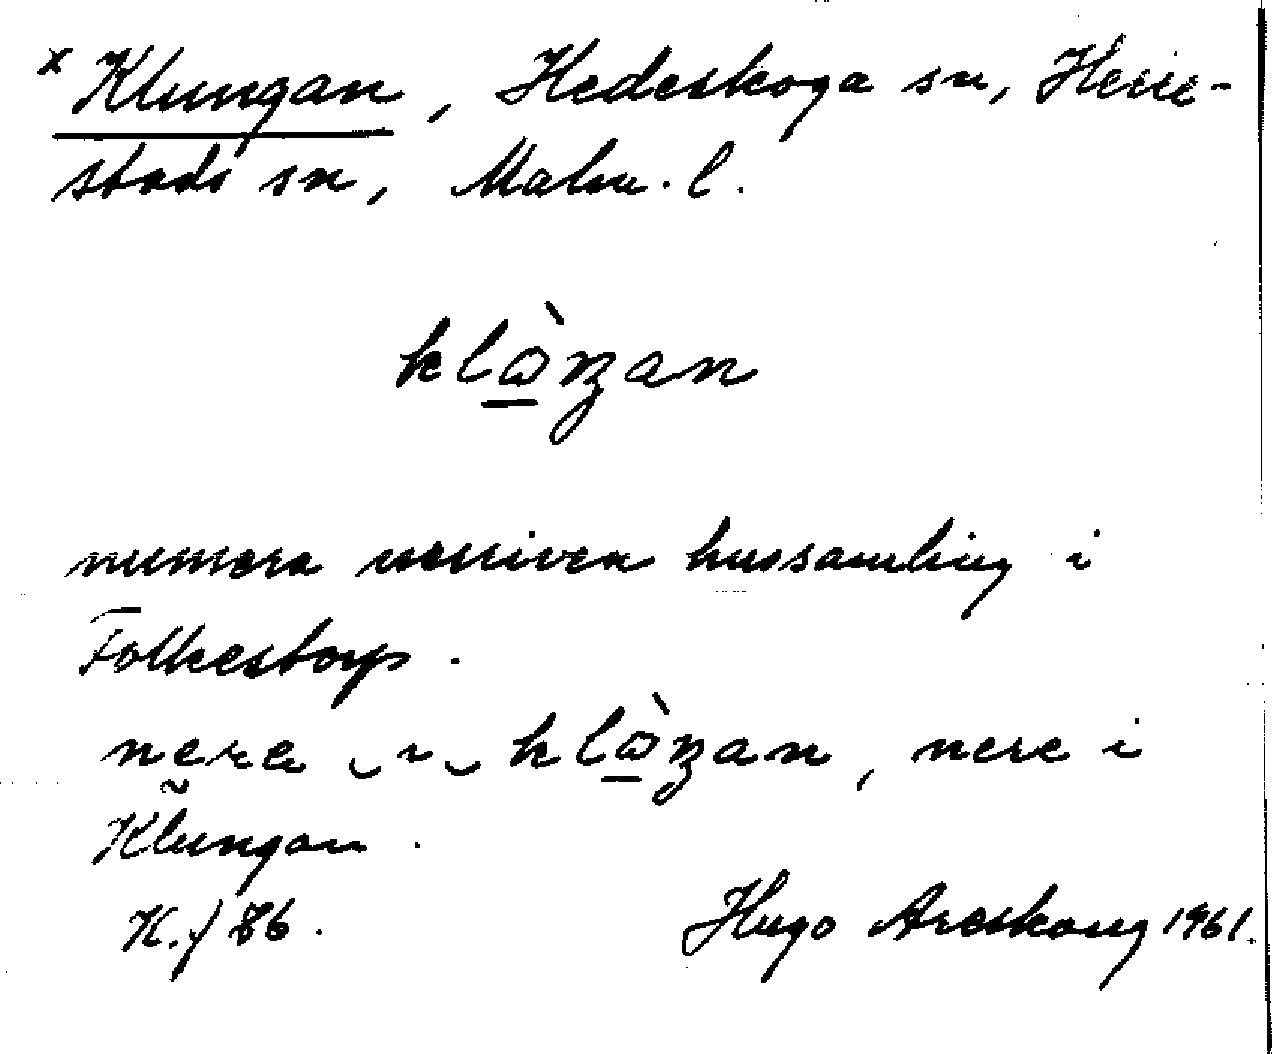 x Klungan, Hedeskoga sn, Herre-
stads sn, Malm. l.
klò̲ŋan
numera försvunnen hussamling i
Folkestorp.
nere i klò̲ŋan, nere i
Klungan.
K./86. Hugo Areskoug 1961.